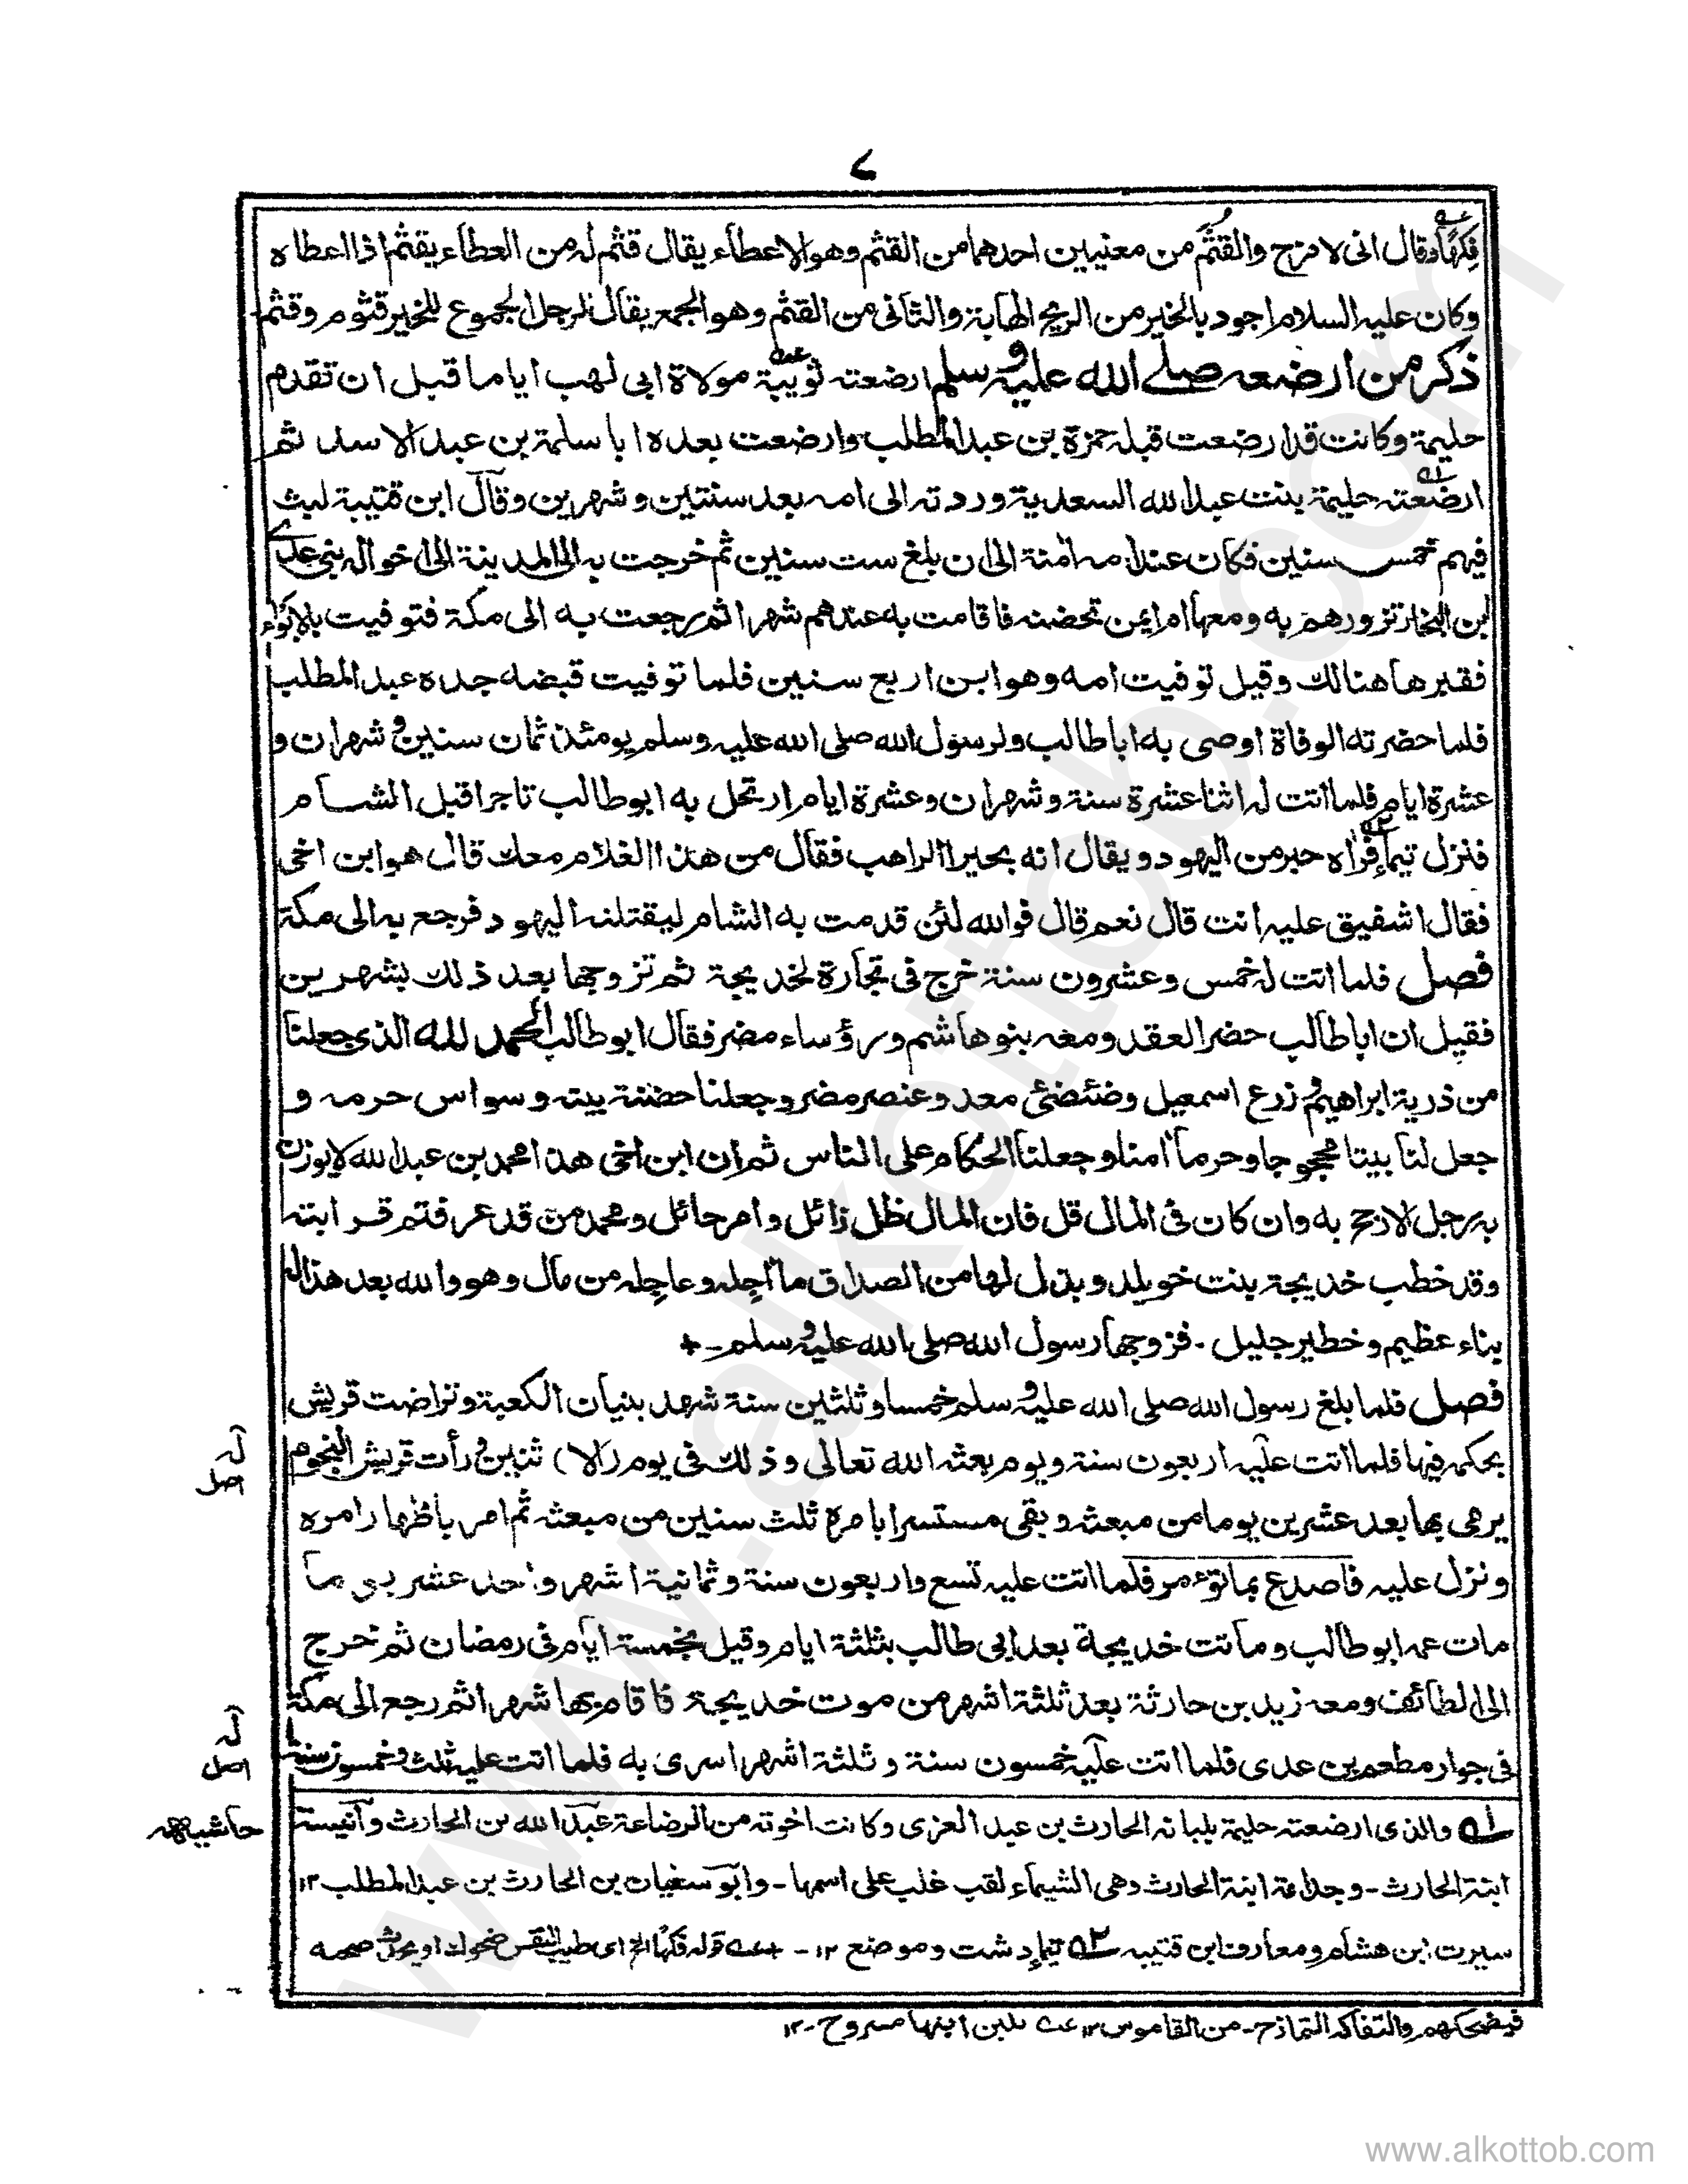 ٧
فكهاً وقال انى لا مزح والقُثَم من معنيين احدهما من القثم وهو الاعطاء يقال قثم له من العطاء يقثم اذا اعطاه
وكان عليه السلام اجود بالخير من الريح الهابة والثانى من القثم وهو الجمع يقال للرجل الجموع للخير قثوم وقثم
ذكر من ارضعه صلے الله عليه وسلم ارضعته ثويبة مولاة ابى لهب اياما قبل ان تقدم
حليمة وكانت قد ارضعت قبله حمزة بن عبد المطلب وارضعت بعده ابا سلمة بن عبد الاسد ثم
ارضعته حليمة بنت عبد الله السعدية وردته الى امه بعد سنتين وشهرين وقال ابن قتيبة لبث
فيهم خمس سنين فكان عند امه اٰمنة الى ان بلغ ست سنين ثم خرجت به الى المدينة الى اخواله بنى عدے
ابن النجار تزورهم به ومعها ام ايمن تحضنه فاقامت به عندهم شهرا ثم رجعت به الى مكة فتوفيت بالابواء
فقبرها هنالك وقيل توفيت امه وهو ابن اربع سنين فلما توفيت قبضه جده عبد المطلب
فلما حضرته الوفاة اوصى به ابا طالب ولرسول الله صلى الله عليه وسلم يومئذ ثمان سنين وشهران و
عشرة ايام فلما اتت له اثنا عشرة سنة وشهران وعشرة ايام ارتحل به ابو طالب تاجرا قبل الشام
فنزل تيماء فراه حبر من اليهود ويقال انه بحيرا الراهب فقال من هذا الغلام معك قال هو ابن اخى
فقال اشفيق عليه انت قال نعم قال فوالله لئن قدمت به الشام ليقتلنه اليهود فرجع به الى مكة
فصل فلما اتت له خمس وعشرون سنة خرج فى تجارة لخديجة ثم تزوجها بعد ذلك بشهرين
فقيل ان ابا طالب حضر العقد ومعه بنو هاشم ورؤساء مضر فقال ابو طالب الحمد لله الذى جعلنا
من ذرية ابراهيم وزرع اسمعيل وضئضئ معد وعنصر مضر وجعلنا حضنة بيته وسواس حرمه و
جعل لنا بيتا محجوجا وحرما اٰمنا وجعلنا الحكام على الناس ثم ان ابن اخى هذا محمد بن عبد الله لا يوزن
به رجل الا رجح به وان كان فى المال قل فان المال ظل زائل وامر حائل ومحمد من قد عرفتم قرابته
وقد خطب خديجة بنت خويلد وبذل لها من الصداق ما اٰجله وعاجله من مال وهو والله بعد هذا له
بناء عظيم وخطير جليل - فزوجها رسول الله صلى الله عليه وسلم -
فصل فلما بلغ رسول الله صلى الله عليه وسلم خمسا وثلثين سنة شهد بنيان الكعبة وتراضت قريش
بحكمه فيها فلما اتت عليه اربعون سنة ويوم بعثه الله تعالى وذلك فى يوم (الا) ثنين ورأت قريش النجوم
له
اصل
يرمى بها بعد عشرين يوما من مبعثه وبقى مستسرا بامره ثلث سنين من مبعثه ثم امر باظهار امره
ونزل عليه فاصدع بما تؤمر فلما اتت عليه تسع واربعون سنة وثمانية اشهر واحد عشر يوما
مات عمه ابو طالب وماتت خديجة بعد ابى طالب بثلثة ايام وقيل بخمسة ايام فى رمضان ثم خرج
الى الطائف ومعه زيد بن حارثة بعد ثلثة اشهر من موت خديجة فاقام بها شهرا ثم رجع الى مكة
فى جوار مطعم بن عدى فلما اتت عليه خمسون سنة وثلثة اشهر اسرى به فلما اتت عليه ثلث وخمسون سنة
له
اصل
؎۱ والذى ارضعته حليمة بلبانه الحارث بن عبد العزى وكانت اخوته من الرضاعة عبد الله بن الحارث وانيسة
حاشيه
ابنة الحارث - وجدامة ابنة الحارث وهى الشيماء لقب غلب على اسمها - وابو سفيان بن الحارث بن عبد المطلب ١٢
سيرت ابن هشام ومعارف ابن قتيبه ؎٢ تيماء دشت وموضع ١٢ - عه قوله فكها الخ اى طيب النفس ضحوك او يحدث صحبه
فيضحكهم والتفاكه التمازح - من القاموس ١٢ عه بلبن ابنها مسروح - ١٢
www.alkottob.com
www.alkottob.com